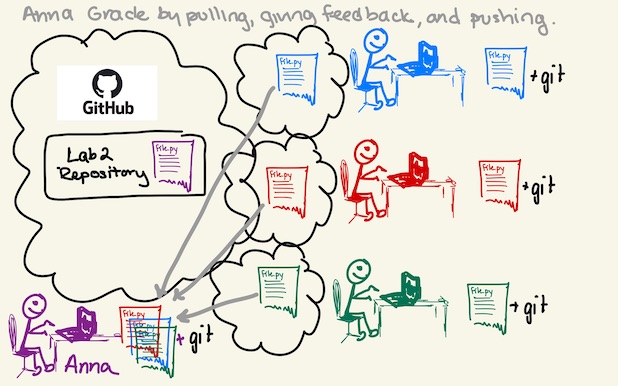 Anna Grade by pulling, giving feedback, and pushing.
GitHub
Lab2
Repository
File.py
File.py
File.py
+git
File.py
File.py
+git
File.py
File.py
+git
File.py
File.py
File.py
+ git
Anna